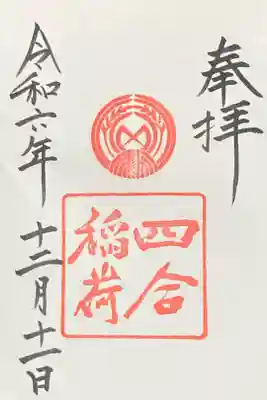 奉拝
四合
稲荷
令和六年
十二月十一日